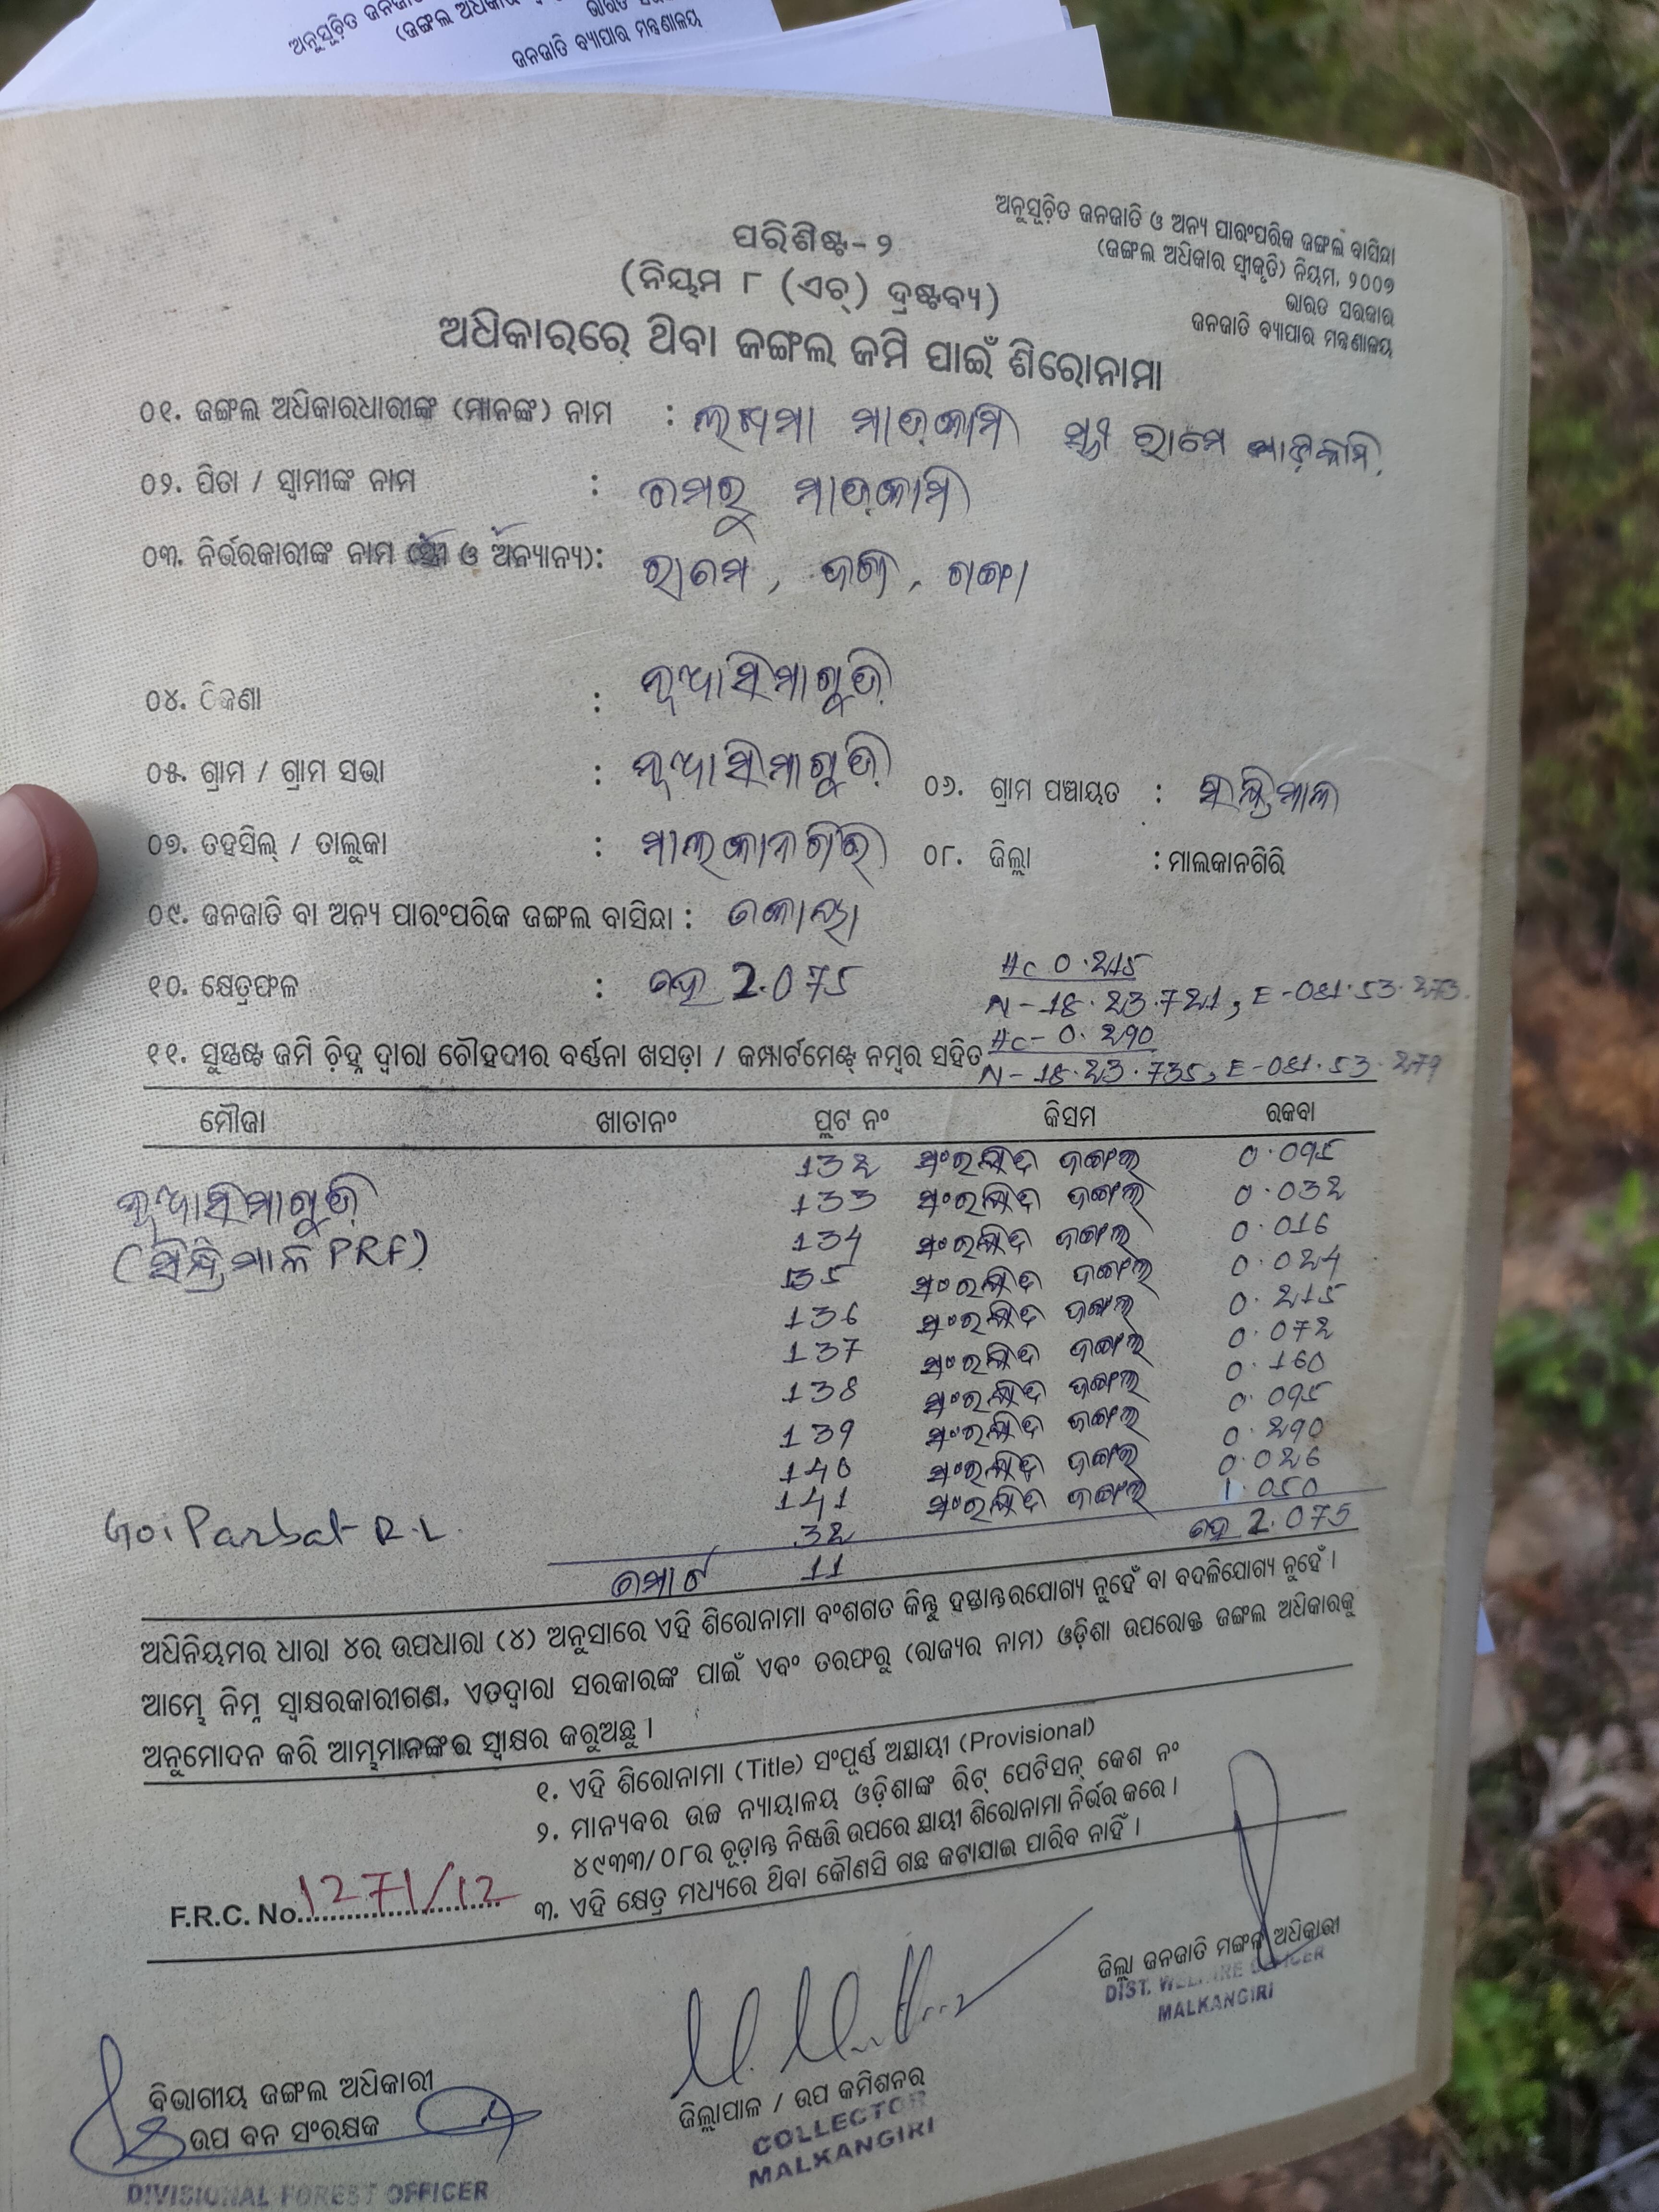 ଅନୁସୂଚିତ ଜନଜାତି
(ଜଙ୍ଗଲ ଅଧିକାର
ଭାରତ
ଜନଜାତି ବ୍ୟାପାର ମନ୍ତ୍ରଣାଳୟ
ଅନୁସୂଚିତ ଜନଜାତି ଓ ଅନ୍ୟ ପାରଂପରିକ ଜଙ୍ଗଲ ବାସିନ୍ଦା
(ଜଙ୍ଗଲ ଅଧିକାର ସ୍ୱୀକୃତି) ନିୟମ, ୨୦୦୭
ଭାରତ ସରକାର
ଜନଜାତି ବ୍ୟାପାର ମନ୍ତ୍ରଣାଳୟ
ପରିଶିଷ୍ଟ-୨
(ନିୟମ ୮ (ଏଚ୍) ଦ୍ରଷ୍ଟବ୍ୟ)
ଅଧିକାରରେ ଥିବା ଜଙ୍ଗଲ ଜମି ପାଇଁ ଶିରୋନାମା
୦୧. ଜଙ୍ଗଲ ଅଧିକାରଧାରୀଙ୍କ (ମାନଙ୍କ) ନାମ : ଲଖମା ମାଡ଼କାମି ସ୍ତ୍ରୀ ରାମେ ମାଡ଼କାମି
୦୨. ପିତା / ସ୍ୱାମୀଙ୍କ ନାମ : ମାଡ଼କାମି
୦୩. ନିର୍ଭରକାରୀଙ୍କ ନାମ (ସ୍ତ୍ରୀ ଓ ଅନ୍ୟାନ୍ୟ): ରାମେ, ଗଙ୍ଗା
୦୪. ଠିକଣା : ନୂଆସିମାଗୁଡ଼ି
୦୫. ଗ୍ରାମ / ଗ୍ରାମ ସଭା : ନୂଆସିମାଗୁଡ଼ି ୦୬. ଗ୍ରାମ ପଞ୍ଚାୟତ : ସିନ୍ଦ୍ରିମାଳ
୦୭. ତହସିଲ୍ / ତାଲୁକା : ମାଲକାନଗିରି ୦୮. ଜିଲ୍ଲା : ମାଲକାନଗିରି
୦୯. ଜନଜାତି ବା ଅନ୍ୟ ପାରଂପରିକ ଜଙ୍ଗଲ ବାସିନ୍ଦା : କୋୟା
୧୦. କ୍ଷେତ୍ରଫଳ : ହେ 2.075
Hc 0.215
N-18.23.721, E-081.53.273
Hc-0.290
N-18.23.735, E-081.53.279
୧୧. ସୁସ୍ପଷ୍ଟ ଜମି ଚିହ୍ନ ଦ୍ୱାରା ଚୌହଦୀର ବର୍ଣ୍ଣନା ଖସଡ଼ା / କମ୍ପାର୍ଟମେଣ୍ଟ୍ ନମ୍ବର ସହିତ
ମୌଜା ଖାତାନଂ ପ୍ଲଟ ନଂ କିସମ ରକବା
132 ସଂରକ୍ଷିତ ଜଙ୍ଗଲ 0.095
ନୂଆସିମାଗୁଡ଼ି 133 ସଂରକ୍ଷିତ ଜଙ୍ଗଲ 0.032
(ସିନ୍ଦ୍ରିମାଳ PRF) 134 ସଂରକ୍ଷିତ ଜଙ୍ଗଲ 0.016
135 ସଂରକ୍ଷିତ ଜଙ୍ଗଲ 0.024
136 ସଂରକ୍ଷିତ ଜଙ୍ଗଲ 0.215
137 ସଂରକ୍ଷିତ ଜଙ୍ଗଲ 0.072
138 ସଂରକ୍ଷିତ ଜଙ୍ଗଲ 0.160
139 ସଂରକ୍ଷିତ ଜଙ୍ଗଲ 0.095
140 ସଂରକ୍ଷିତ ଜଙ୍ଗଲ 0.290
141 ସଂରକ୍ଷିତ ଜଙ୍ଗଲ 0.026
Goi Parbat R.L. 32 1.050
ମୋଟ 11 ହେ 2.075
ଅଧିନିୟମର ଧାରା ୪ର ଉପଧାରା (୪) ଅନୁସାରେ ଏହି ଶିରୋନାମା ବଂଶଗତ କିନ୍ତୁ ହସ୍ତାନ୍ତରଯୋଗ୍ୟ ନୁହେଁ ବା ବଦଳିଯୋଗ୍ୟ ନୁହେଁ ।
ଆମ୍ଭେ ନିମ୍ନ ସ୍ୱାକ୍ଷରକାରୀଗଣ, ଏତଦ୍ୱାରା ସରକାରଙ୍କ ପାଇଁ ଏବଂ ତରଫରୁ (ରାଜ୍ୟର ନାମ) ଓଡ଼ିଶା ଉପରୋକ୍ତ ଜଙ୍ଗଲ ଅଧିକାରକୁ
ଅନୁମୋଦନ କରି ଆମ୍ଭମାନଙ୍କର ସ୍ୱାକ୍ଷର କରୁଅଛୁ ।
୧. ଏହି ଶିରୋନାମା (Title) ସଂପୂର୍ଣ୍ଣ ଅସ୍ଥାୟୀ (Provisional)
୨. ମାନ୍ୟବର ଉଚ୍ଚ ନ୍ୟାୟାଳୟ ଓଡ଼ିଶାଙ୍କ ରିଟ୍ ପେଟିସନ୍ କେଶ ନଂ
୪୯୩୩/୦୮ର ଚୂଡ଼ାନ୍ତ ନିଷ୍ପତ୍ତି ଉପରେ ସ୍ଥାୟୀ ଶିରୋନାମା ନିର୍ଭର କରେ ।
୩. ଏହି କ୍ଷେତ୍ର ମଧ୍ୟରେ ଥିବା କୌଣସି ଗଛ କଟାଯାଇ ପାରିବ ନାହିଁ ।
F.R.C. No. 1271/12
ଜିଲ୍ଲା ଜନଜାତି ମଙ୍ଗଳ ଅଧିକାରୀ
DIST. WELFARE OFFICER
MALKANGIRI
ବିଭାଗୀୟ ଜଙ୍ଗଲ ଅଧିକାରୀ
ଉପ ବନ ସଂରକ୍ଷକ
DIVISIONAL FOREST OFFICER
ଜିଲ୍ଲାପାଳ / ଉପ କମିଶନର
COLLECTOR
MALKANGIRI